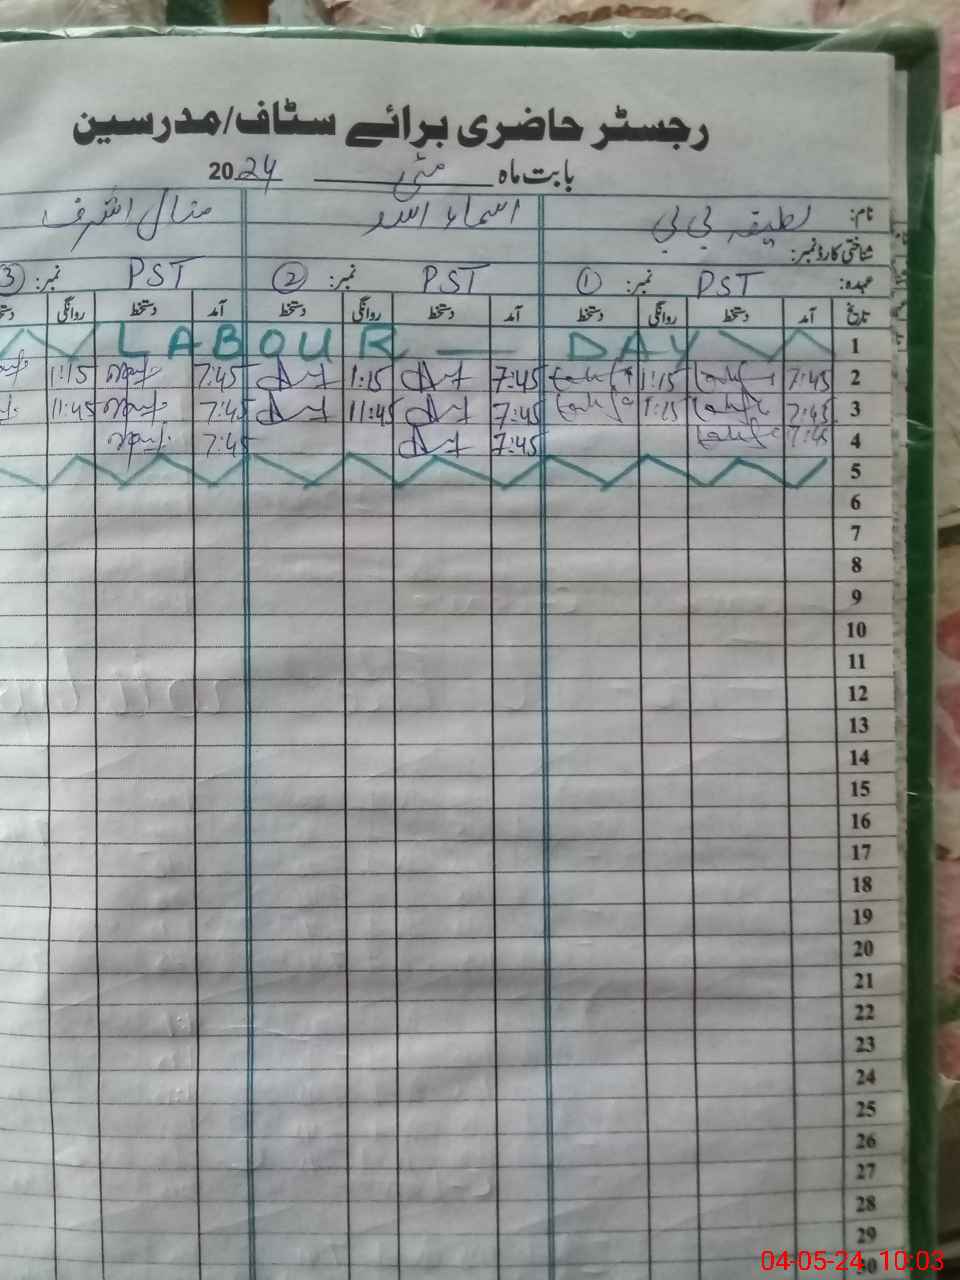 رجسٹر حاضری برائے سٹاف/مدرسین
بابت ماہ مئی 2024
نام: لطیفہ بی بی اسماء اسد منال اشرف
شناختی کارڈ نمبر:
عہدہ: PST نمبر: 1 PST نمبر: 2 PST نمبر: 3
تاریخ آمد دستخط روانگی دستخط آمد دستخط روانگی دستخط آمد دستخط روانگی
1 LABOUR — DAY
2 7:45 1:15 7:45 1:15 7:45 1:15
3 7:45 7:45 11:45 7:45 11:45
4 7:45 7:45 7:45
5
6
7
8
9
10
11
12
13
14
15
16
17
18
19
20
21
22
23
24
25
26
27
28
29
30
04-05-24 10:03